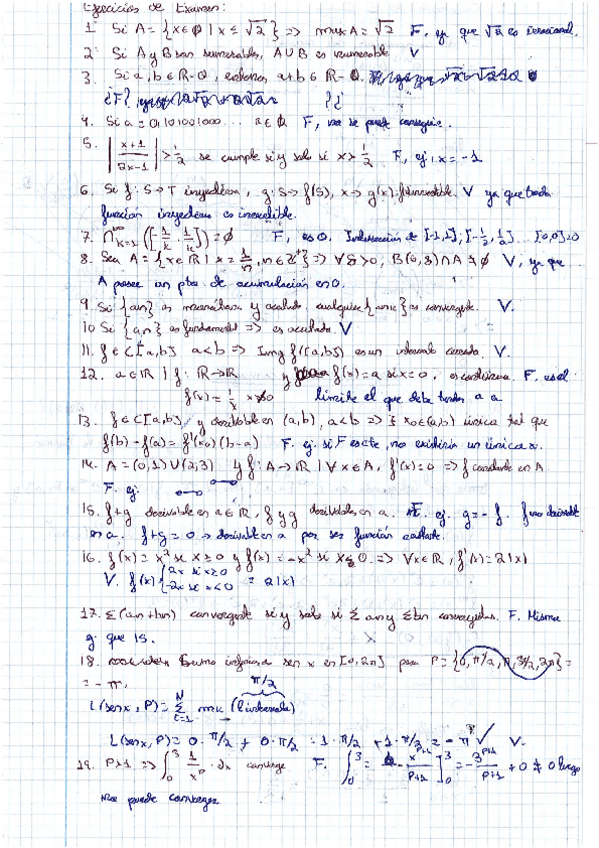 Ejercicios de Examen:
1. Si A = {x ∈ Q | x ≤ √2} => max A = √2 F, ya que √2 es irracional.
2. Si A y B son numerables, A∪B es numerable V
3. Si a, b ∈ R-Q, entonces a+b ∈ R-Q.
¿F?
4. Si a = 0,101001000... a ∈ Q F, no se puede conseguir.
5. |x+1 / 2x-1| > 1/2 se cumple si y solo si x > 1/2 F, ej: x = -1
6. Si f: S→T inyectiva, g: S→f(S), x→g(x) V ya que toda
función inyectiva es invertible.
7. ∩ k=1 ∞ ([-1/k, 1/k]) = ∅ F, es 0. Intersección de [-1,1], [-1/2, 1/2] ... [0,0] = 0
8. Sea A = {x ∈ R | x = 1/n, n ∈ Z⁺} => ∀δ>0, B(0,δ) ∩ A ≠ ∅ V, ya que
A posee un pto de acumulación en 0.
9. Si {an} es monótona y acotada, cualquier {ank} es convergente. V.
10. Si {an} es fundamental => es acotada. V
11. f ∈ C[a,b] a<b => Img f([a,b]) es un intervalo cerrado. V.
12. a ∈ R | f: R→R y f(x) = a si x = 0, es continua. F. es el
f(x) = 1/x x≠0 límite el que debe tender a a
13. f ∈ C[a,b] y derivable en (a,b), a<b => ∃ x₀∈(a,b) única tal que
f(b) - f(a) = f'(x₀)(b-a) F. ej. si F es cte, no existiría un único x.
14. A = (0,1) ∪ (2,3) y f: A→R | ∀x∈A, f'(x) = 0 => f constante en A
F. ej.
15. f+g derivable en a ∈ R, f y g derivables en a. F. ej. g = -f. f no derivable
en a. f+g = 0 → derivable en a por ser función constante.
16. f(x) = x² si x ≥ 0 y f(x) = -x² si x ≤ 0. => ∀x∈R, f'(x) = 2|x|
V. f'(x) { 2x si x≥0 -2x si x<0 = 2|x|
17. Σ(an+bn) convergente si y solo si Σ an y Σ bn convergentes. F. Misma
q que 15.
18. Suma inferior de sen x en [0, 2π] para P = {0, π/2, π, 3π/2, 2π} =
= -π. π/2
L(senx, P) = Σ i=1 N mk (l'intervalo)
L(senx, P) = 0·π/2 + 0·π/2 - 1·π/2 + -1·π/2 = -π ✓ V.
19. P>1 => ∫₀³ 1/x^p · dx converge F. ∫₀³ = - x^{p+1} / p+1 ]₀³ = - 3^{p+1} / p+1 + 0 ≠ 0 luego
no puede converger